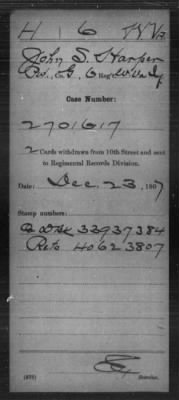 H | 6 | W.Va.
John S. Harper
Co. G, 6 Reg't W Va Inf
Case Number:
2701617
2 Cards withdrawn from 10th Street and sent
to Regimental Records Division.
Date: Dec. 23, 1907
Stamp numbers:
33937384
Retd 40623807
(679)